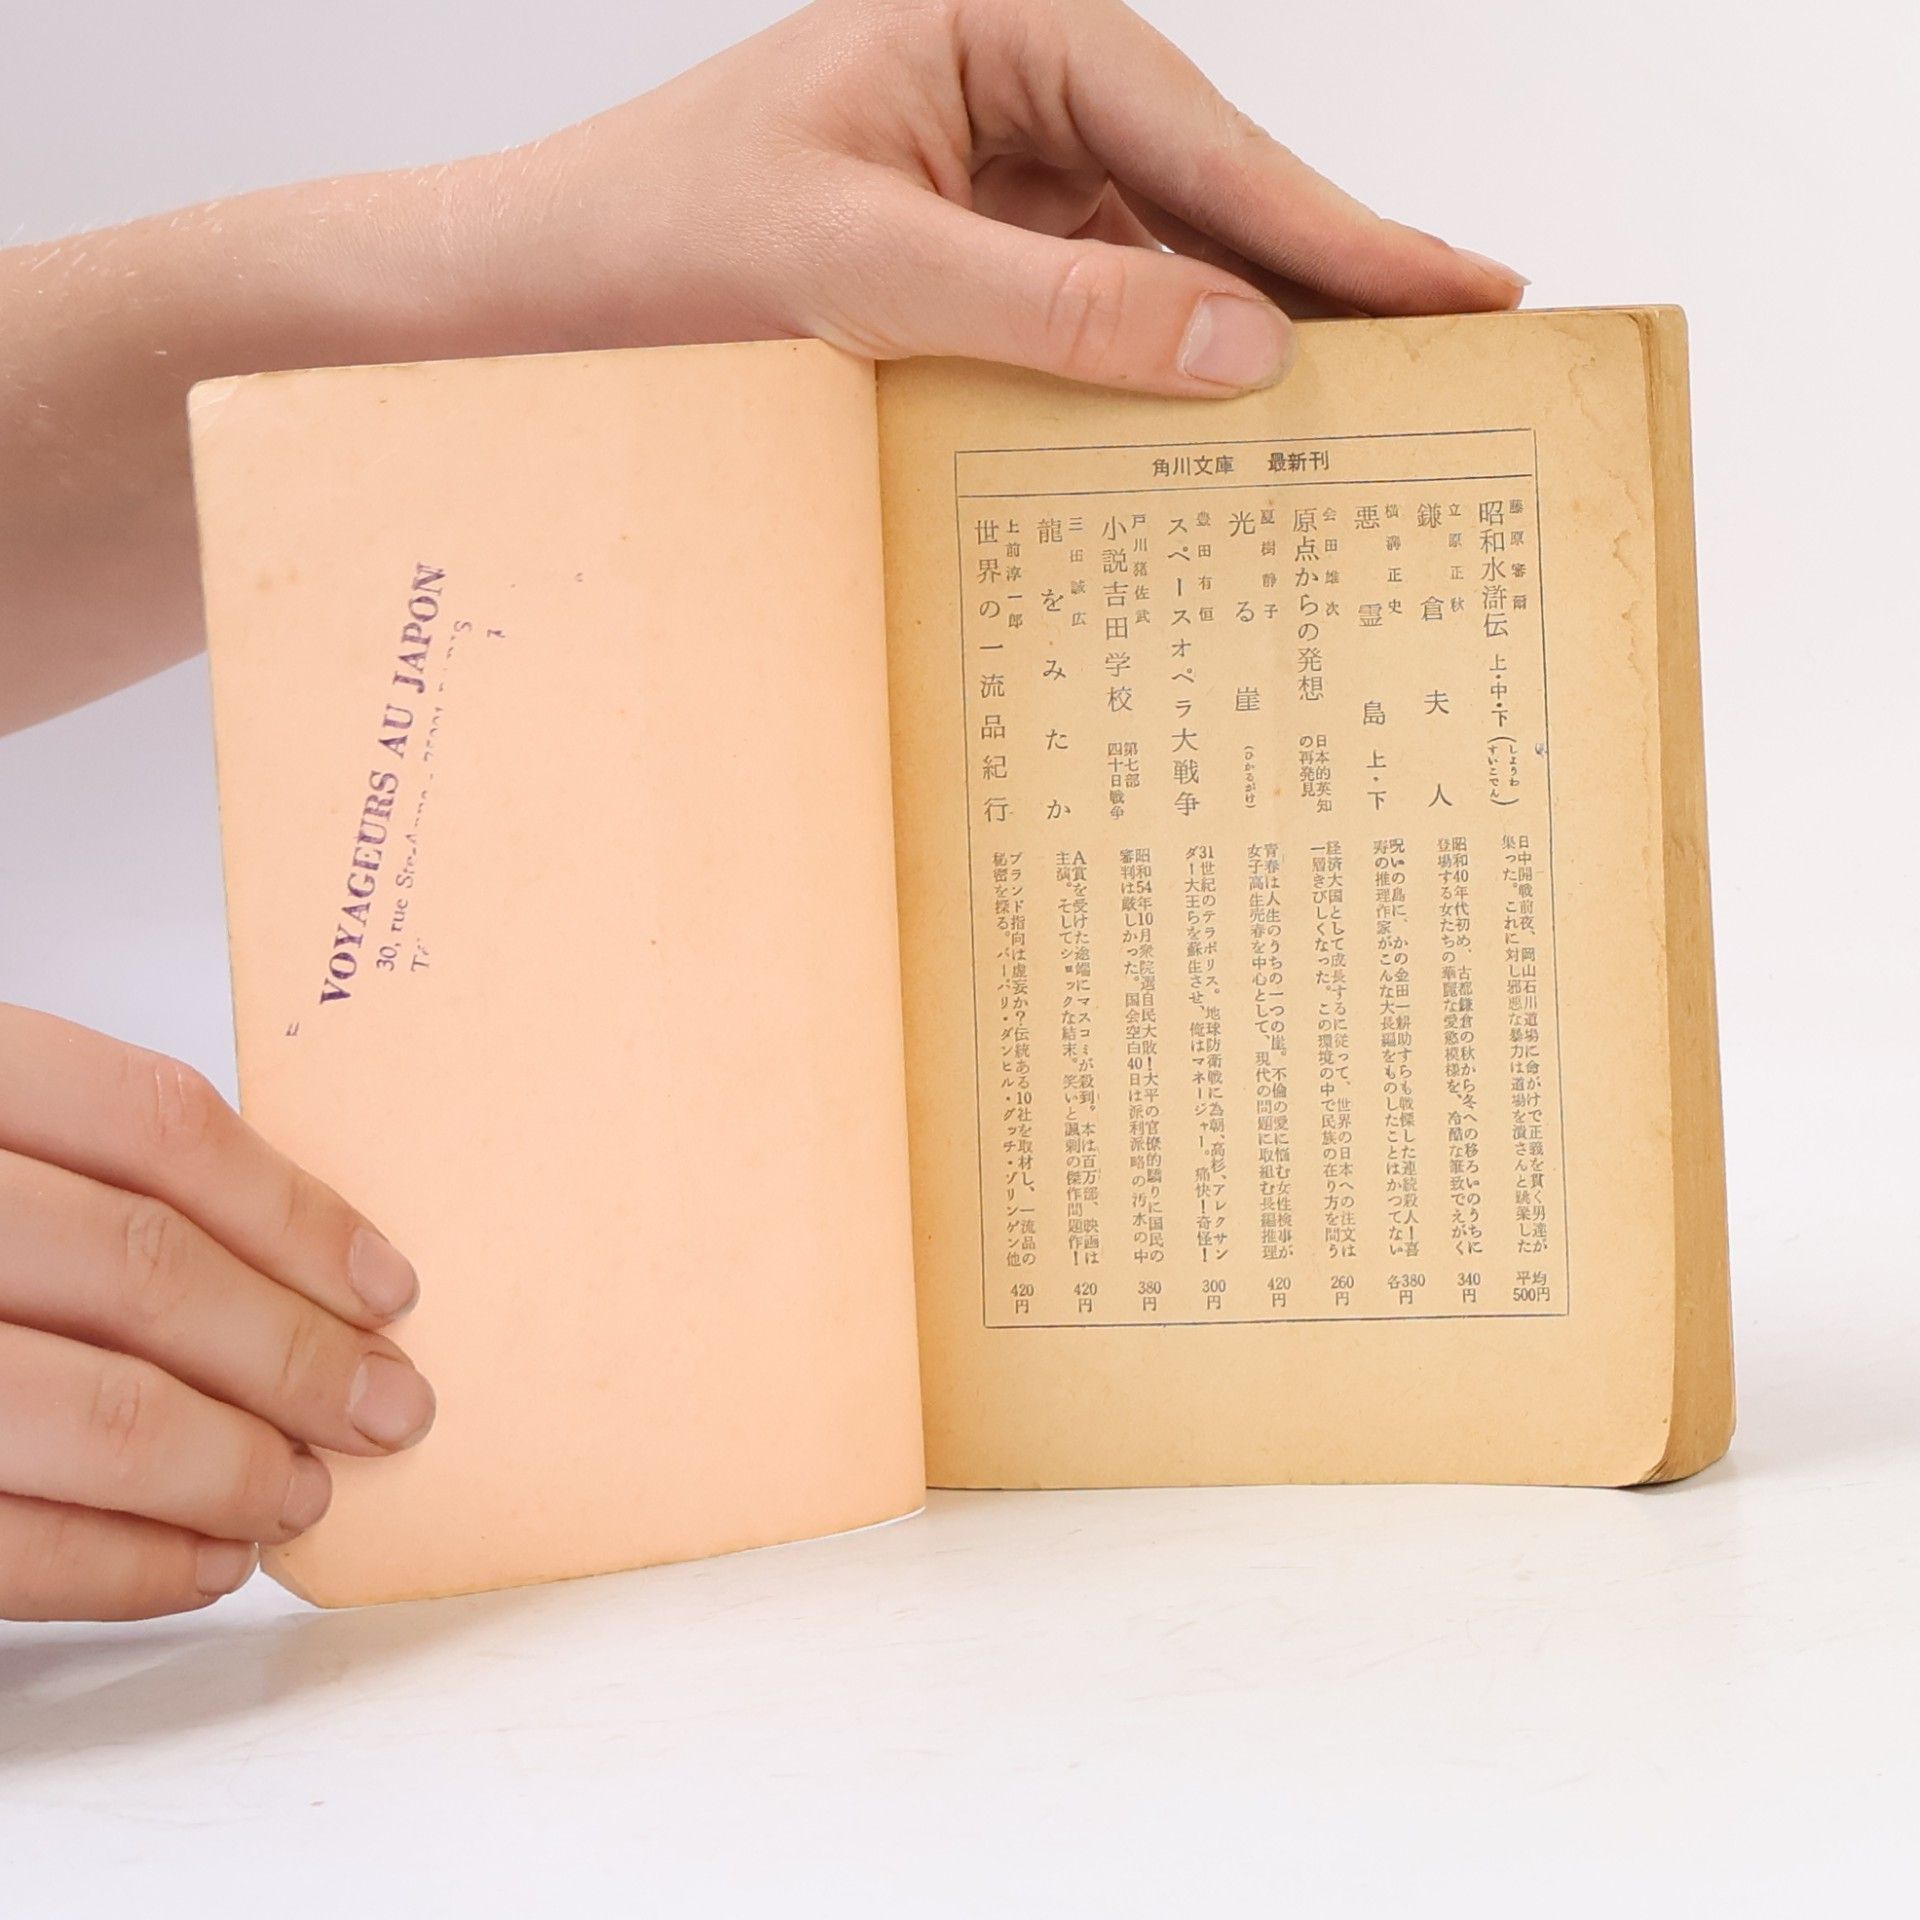 VOYAGEURS AU JAPON
30, rue Ste-Anne - 75001
角川文庫 最新刊
藤原審爾
昭和水滸伝 上・中・下（しようわすいこでん）
日中開戦前夜、岡山石川道場に命がけで正義を貫く男達が
集った。これに対し邪悪な暴力は道場を潰さんと跳梁した
平均500円
立原正秋
鎌倉夫人
昭和40年代初め、古都鎌倉の秋から冬への移ろいのうちに
登場する女たちの華麗な愛慾模様を、冷酷な筆致でえがく
340円
横溝正史
悪霊島 上・下
呪いの島に、かの金田一耕助すらも戦慄した連続殺人！喜
寿の推理作家がこんな大長編をものしたことはかつてない
各380円
会田雄次
原点からの発想 日本的英知の再発見
経済大国として成長するに従って、世界の日本への注文は
一層きびしくなった。この環境の中で民族の在り方を問う
260円
夏樹静子
光る崖（ひかるがけ）
青春は人生のうちの一つの崖。不倫の愛に悩む女性検事が
女子高生売春を中心として、現代の問題に取組む長編推理
420円
豊田有恒
スペースオペラ大戦争
31世紀のテラポリス。地球防衛戦に為朝、高杉、アレクサン
ダー大王らを蘇生させ、俺はマネージャー。痛快！奇怪！
300円
戸川猪佐武
小説吉田学校 第七部 四十日戦争
昭和54年10月衆院選自民大敗！大平の官僚的驕りに国民の
審判は厳しかった。国会空白40日は派利派略の汚水の中
380円
三田誠広
龍をみたか
A賞を受けた途端にマスコミが殺到。本は百万部、映画は
主演。そしてショックな結末。笑いと諷刺の傑作問題作！
420円
上前淳一郎
世界の一流品紀行
ブランド指向は虚妄か？伝統ある10社を取材し、一流品の
秘密を探る。バーバリ・ダンヒル・グッチ・ゾリンゲン他
420円